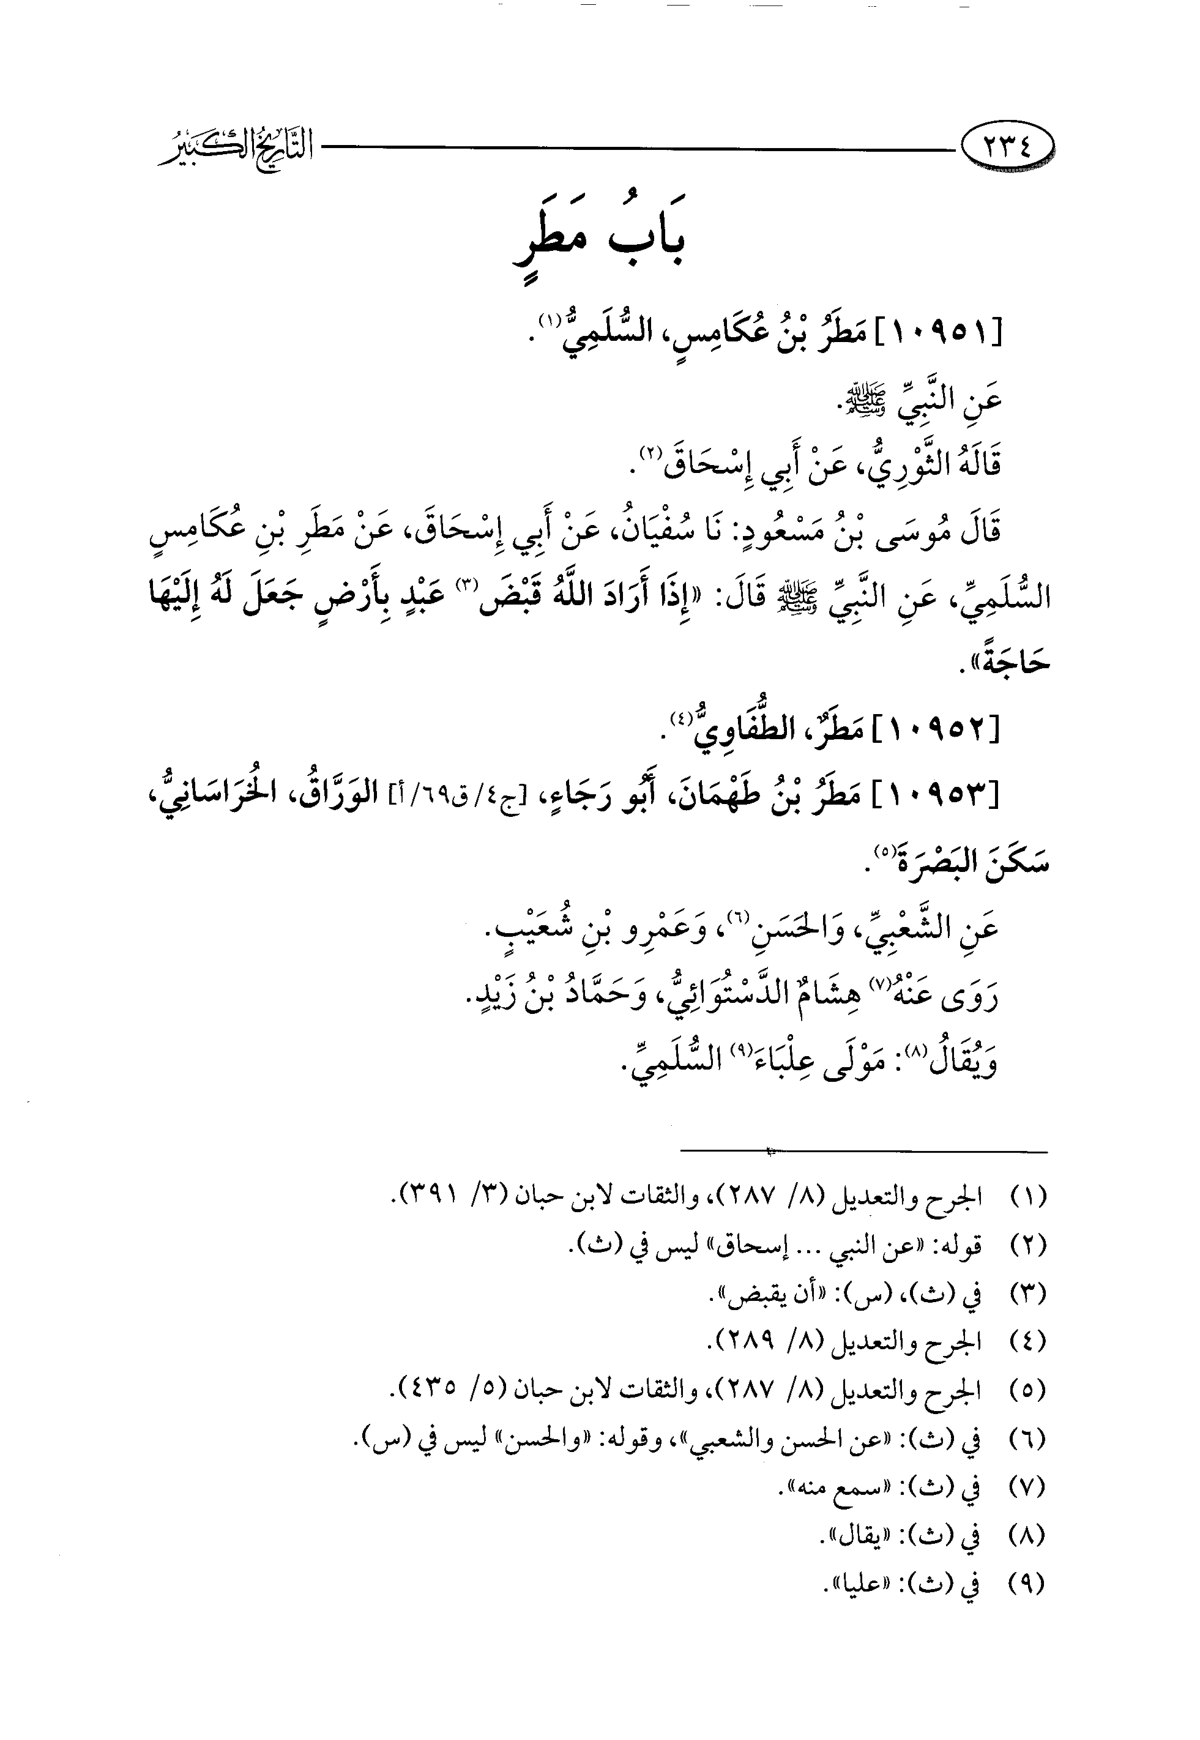 ٢٣٤ التَّارِيخُ الكَبِيرُ
بَابُ مَطَرٍ
[١٠٩٥١] مَطَرُ بْنُ عُكَامِسٍ، السُّلَمِيُّ(١).
عَنِ النَّبِيِّ ﷺ.
قَالَهُ الثَّوْرِيُّ، عَنْ أَبِي إِسْحَاقَ(٢).
قَالَ مُوسَى بْنُ مَسْعُودٍ: نَا سُفْيَانُ، عَنْ أَبِي إِسْحَاقَ، عَنْ مَطَرِ بْنِ عُكَامِسٍ
السُّلَمِيِّ، عَنِ النَّبِيِّ ﷺ قَالَ: «إِذَا أَرَادَ اللَّهُ قَبْضَ(٣) عَبْدٍ بِأَرْضٍ جَعَلَ لَهُ إِلَيْهَا
حَاجَةً».
[١٠٩٥٢] مَطَرٌ، الطُّفَاوِيُّ(٤).
[١٠٩٥٣] مَطَرُ بْنُ طَهْمَانَ، أَبُو رَجَاءٍ، [ج٤/ق٦٩/أ] الوَرَّاقُ، الخُرَاسَانِيُّ،
سَكَنَ البَصْرَةَ(٥).
عَنِ الشَّعْبِيِّ، وَالحَسَنِ(٦)، وَعَمْرِو بْنِ شُعَيْبٍ.
رَوَى عَنْهُ(٧) هِشَامٌ الدَّسْتُوَائِيُّ، وَحَمَّادُ بْنُ زَيْدٍ.
وَيُقَالُ(٨): مَوْلَى عِلْبَاءَ(٩) السُّلَمِيِّ.
(١) الجرح والتعديل (٨/ ٢٨٧)، والثقات لابن حبان (٣/ ٣٩١).
(٢) قوله: «عن النبي ... إسحاق» ليس في (ث).
(٣) في (ث)، (س): «أن يقبض».
(٤) الجرح والتعديل (٨/ ٢٨٩).
(٥) الجرح والتعديل (٨/ ٢٨٧)، والثقات لابن حبان (٥/ ٤٣٥).
(٦) في (ث): «عن الحسن والشعبي»، وقوله: «والحسن» ليس في (س).
(٧) في (ث): «سمع منه».
(٨) في (ث): «يقال».
(٩) في (ث): «عليا».